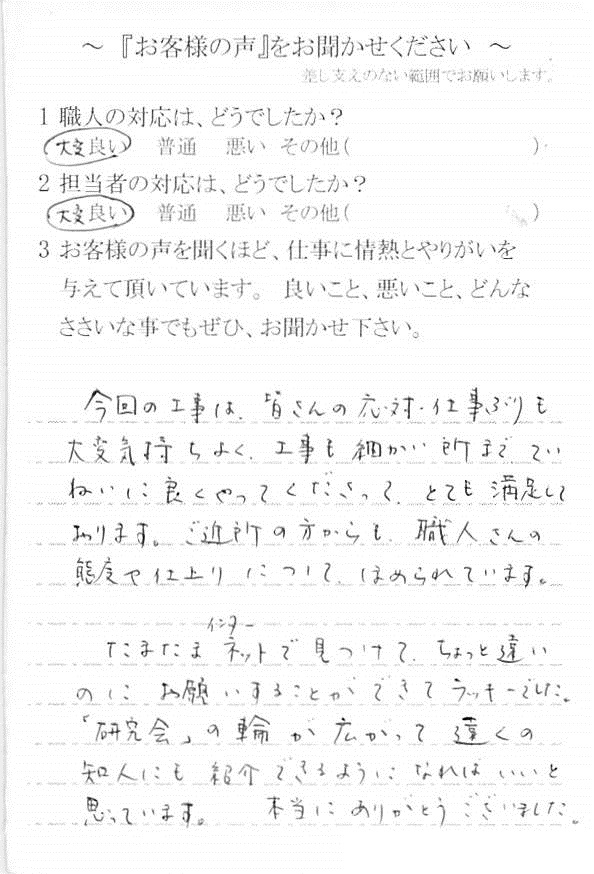 ～『お客様の声』をお聞かせください ～
差し支えのない範囲でお願いします。
1 職人の対応は、どうでしたか？
大変良い 普通 悪い その他( )
2 担当者の対応は、どうでしたか？
大変良い 普通 悪い その他( )
3 お客様の声を聞くほど、仕事に情熱とやりがいを
与えて頂いています。 良いこと、悪いこと、どんな
ささいな事でもぜひ、お聞かせ下さい。
今回の工事は、皆さんの応対・仕事ぶりも
大変気持ちよく、工事も細かい所までてい
ねいに良くやってくださって、とても満足して
おります。ご近所の方からも、職人さんの
態度や仕上りについて、ほめられています。
インター
たまたまネットで見つけて、ちょっと遠い
のにお願いすることができてラッキーでした。
「研究会」の輪が広がって遠くの
知人にも紹介できるようになればいいと
思っています。 本当にありがとうございました。